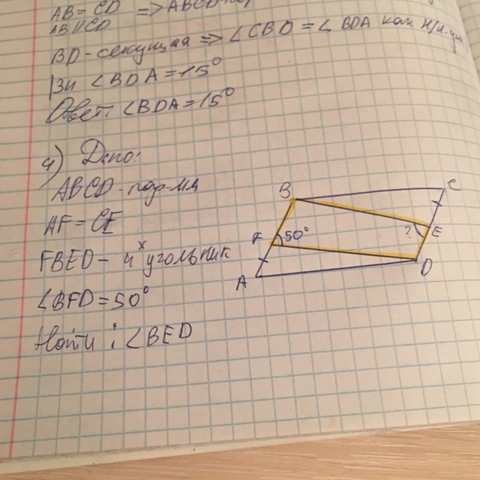 AB = CD => ABCD-пар
AB||CD
BD-секущая => ∠CBD = ∠BDA как н/л.уг
∠BDA = 15°
Ответ: ∠BDA = 15°
4) Дано:
ABCD-пар-мм
AF = CE
FBED - 4х угольник
∠BFD = 50°
Найти: ∠BED
B
C
F
50°
?
E
A
D